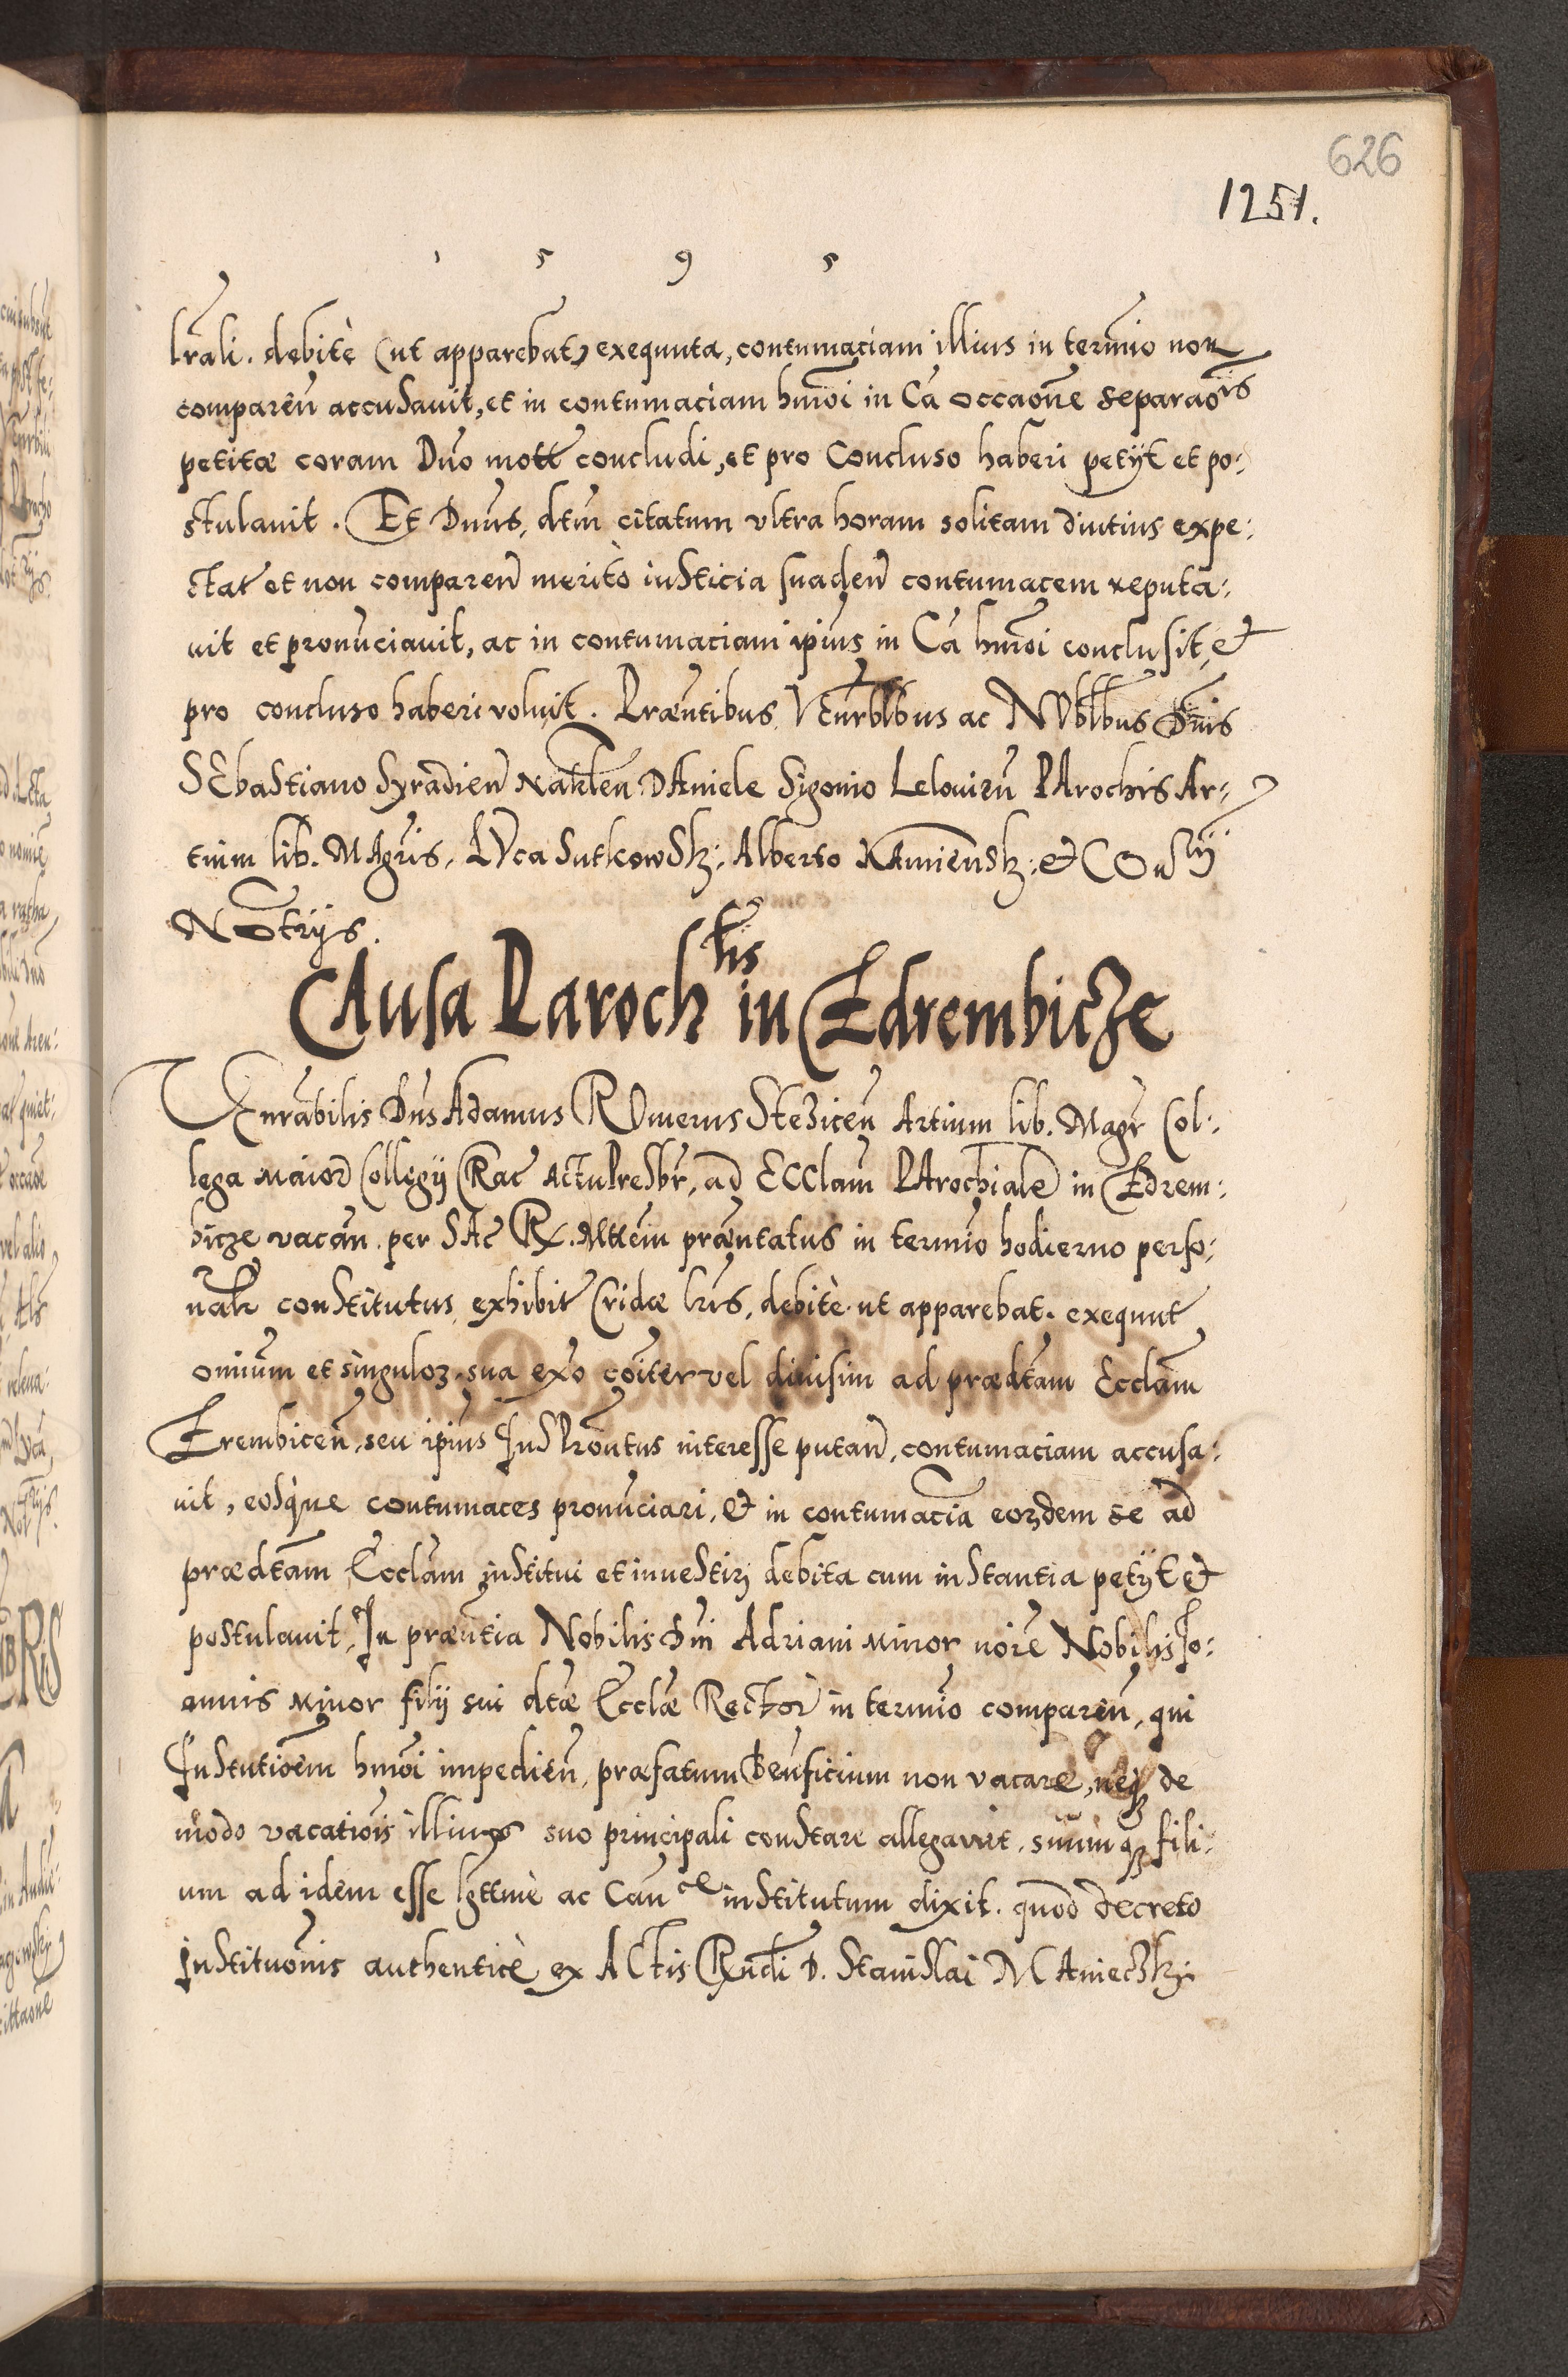 626
1251.
1 5 9 5
lrāli. debitè (ut apparebat) exequuta, contumaciam illius in termīo non
comparēn accusauit, et in contumaciam hmōi in Cā occāōne separaōīs
petitæ coram Dno mott concludi, et pro Concluso haberi petijt et po:
stulauit. Et Dnūs, dtūm citatum vltra horam solitam diutius expe:
ctat et non comparen meritò iusticia suaden contumacem reputa:
uit et pronūciauit, ac in contumaciam ipius in Cā hmōi conclusit, et
pro concluso haberi voluit. Præntibus VEnrblbus ac NObllbus Dnīs
SEbastiano Syradien Naklen DAniele Sigonio Lelouien PArochis Ar:
tium lib. MAgrīs, LVca Sutkowsk: Alberto KAmiensk: et COnsijs
NOtrijs.
CAusa Parochlis in Edrembicze
VEnrābilis Dnūs Adamus ROmerus Stezicen Artium lib. Magr Col:
lega Maior Collegij Crac Actu Presbr, ad ECClām PArochiale in Edrem:
bicze vacān. per SAc R. Mttem præntatus in termīo hodierno perso:
nalr constitutus exhibit Cridæ lrīs, debitè ut apparebat exequut
omium et singuloꝝ sua exō cōiter vel diuisim ad prædtam Ecclām
Erembicen, seu ipius IusPrōntus interesse putan, contumaciam accusa:
uit, eosque contumaces pronūciari, et in contumaciā eorꝝdem se ad
prædtam Ecclām institui et inuestiri debita cum instantia petijt et
postulauit, In præntia Nobilis Dni Adriani Minor noīe Nobilis Jo:
annis Minor filij sui dtæ Ecclæ Rector in termīo comparen, qui
Instutiōem hmōi impedien, præfatum Benficium non vacare, neqꝫ de
modo vacatiōis illius suo principali constare allegauit, suumqꝫ fili:
um ad idem esse lgttmè ac Cance institutum dixit. quod decreto
Instituōnis authenticè ex ACtis Rndi D. Stanislai MAnieczki